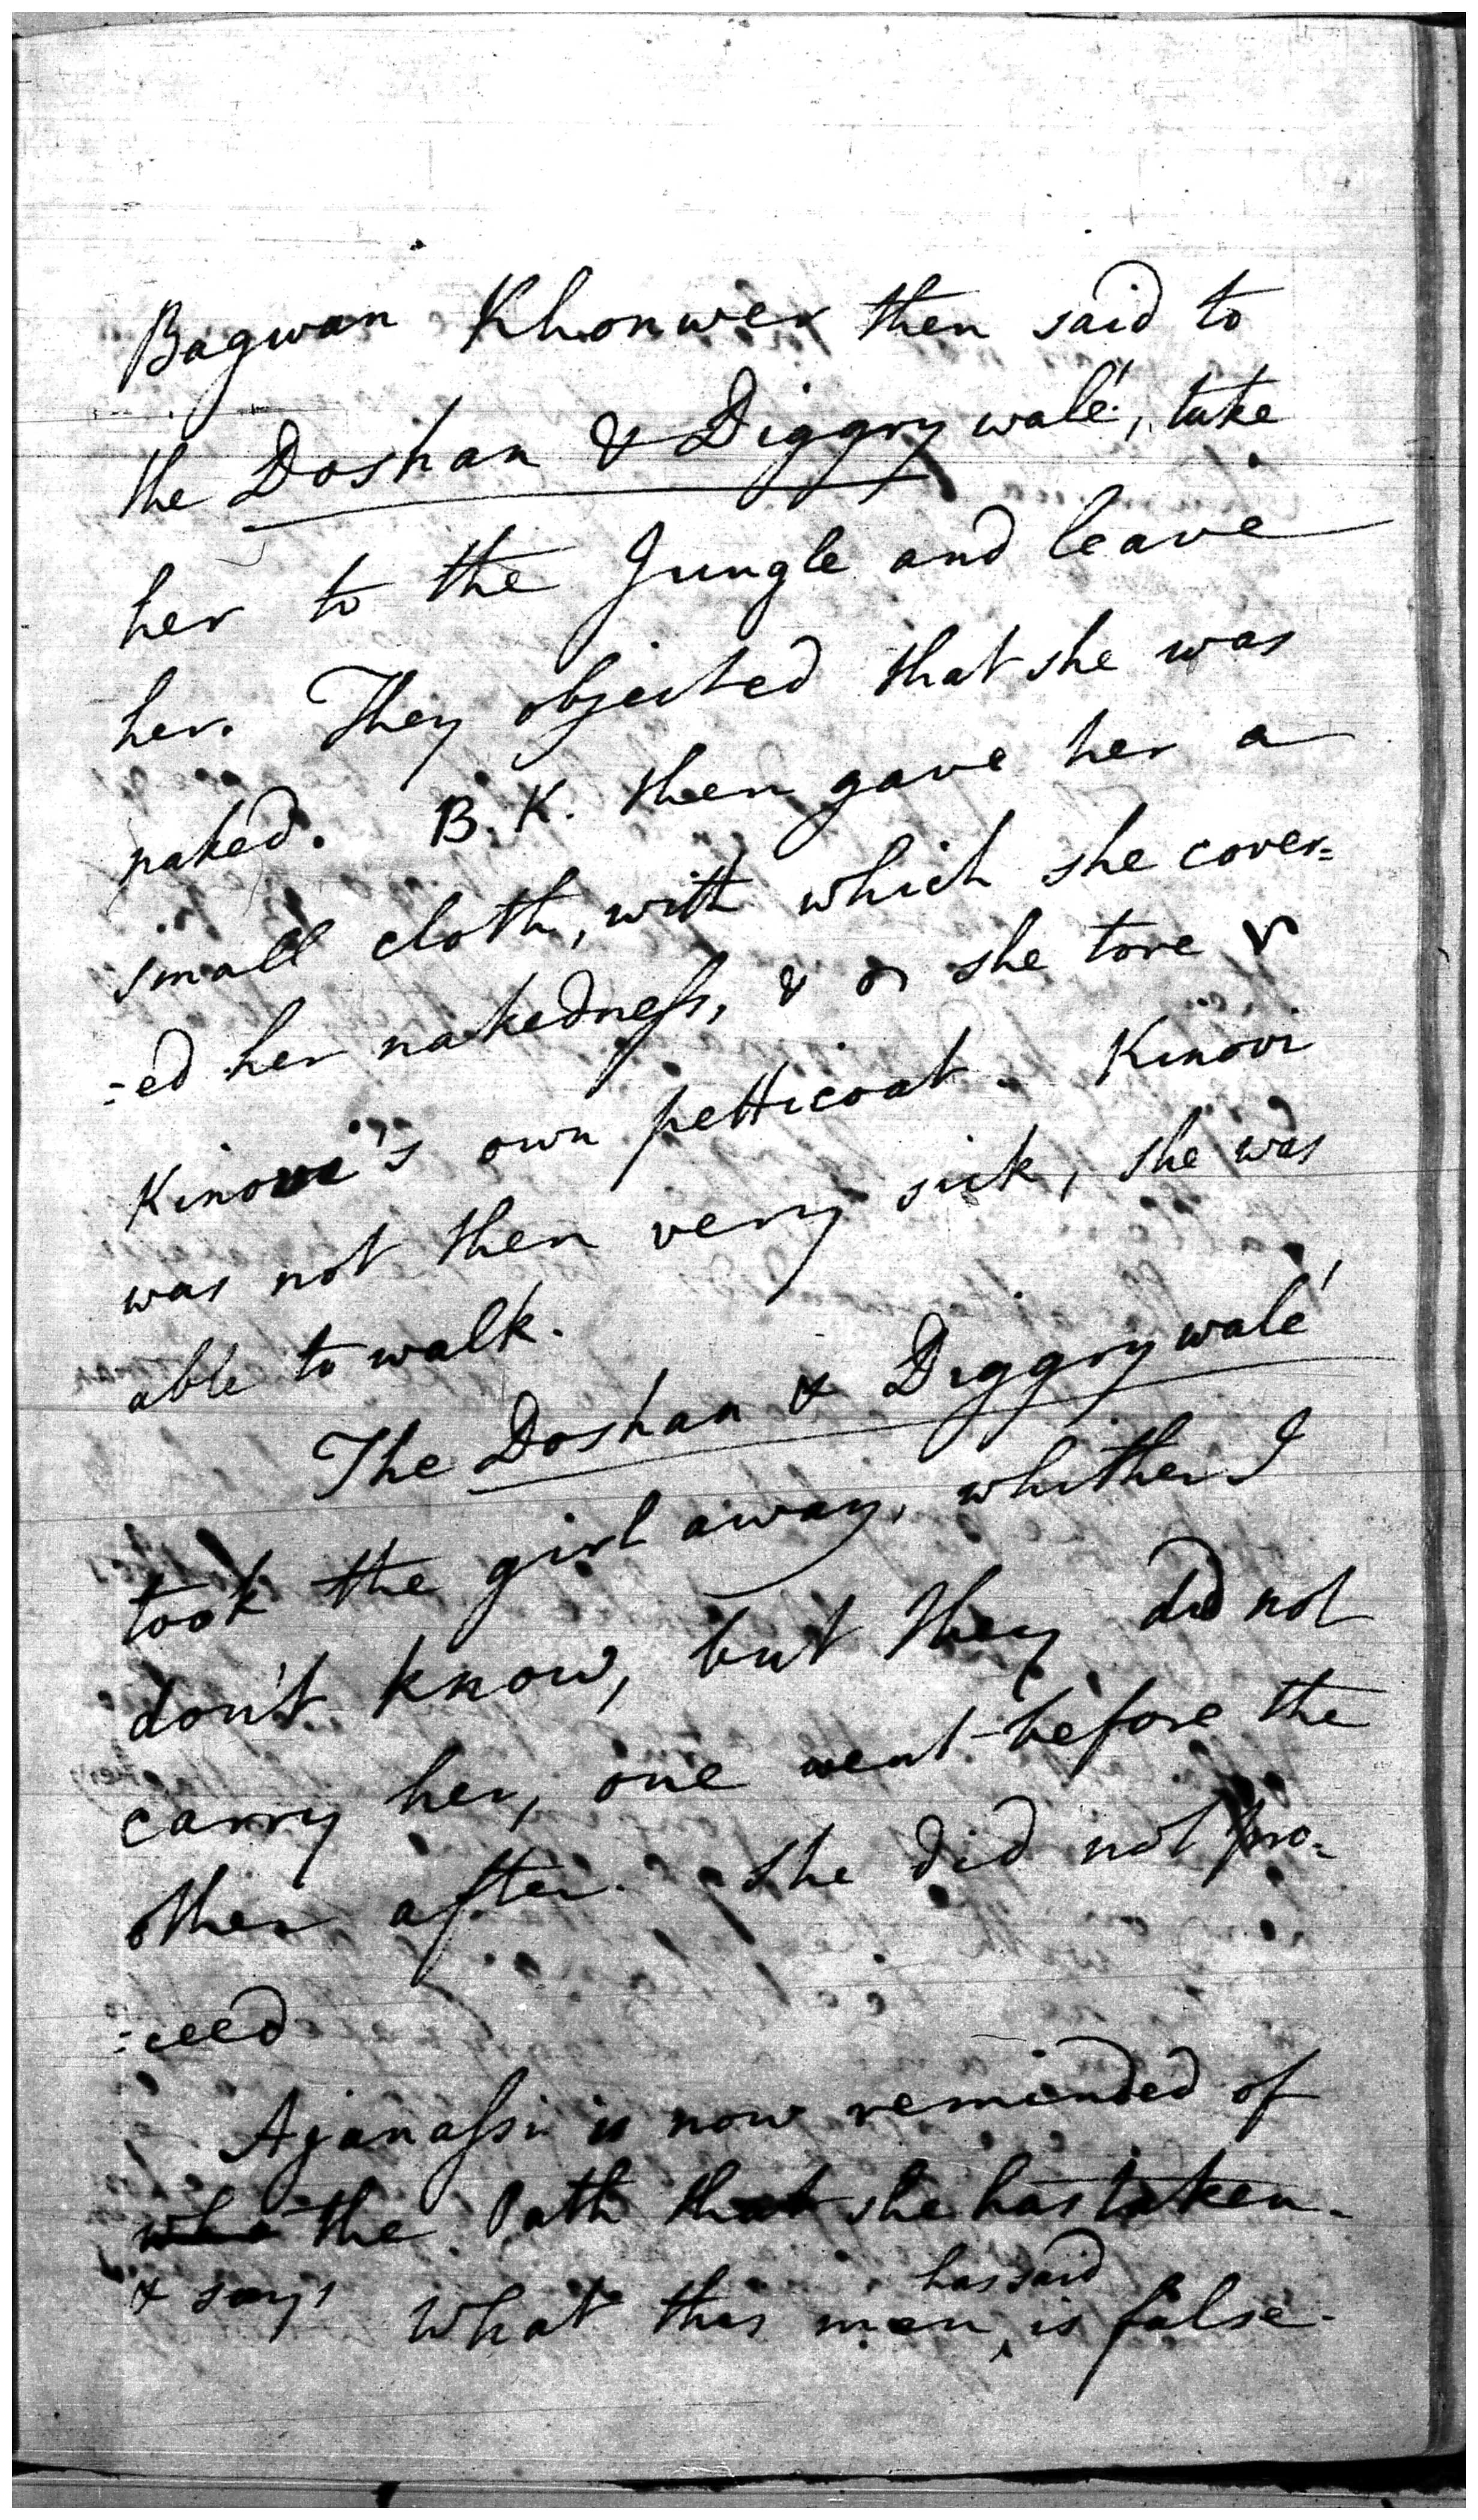 Bagwan Khonwer then said to
the Doshan & Diggry walé, take
her to the Jungle and leave
her. They objected that she was
naked. B. K. then gave her a
small cloth, with which she cover=
=ed her nakedness, & she tore
Kinovi's own petticoat. Kinovi
was not then very sick, she was
able to walk.
The Doshan & Diggry walé
took the girl away, whither I
don't know, but they did not
carry her, one went before the
other after. She did not pro=
=ceed
Ajanassi is now reminded of
the Oath that she has taken.
& says What this man has said is false.